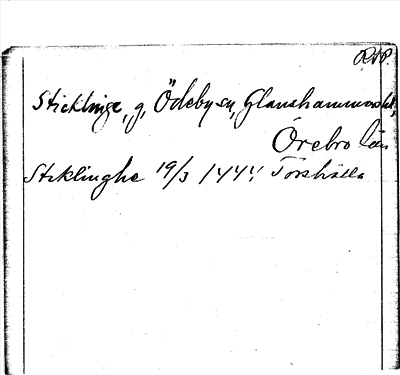 R.A.P.
Sticklinge, g, Ödeby sn, Glanshammars hd,
Örebro län
Stiklinghe 19/3 1444 Torshälla